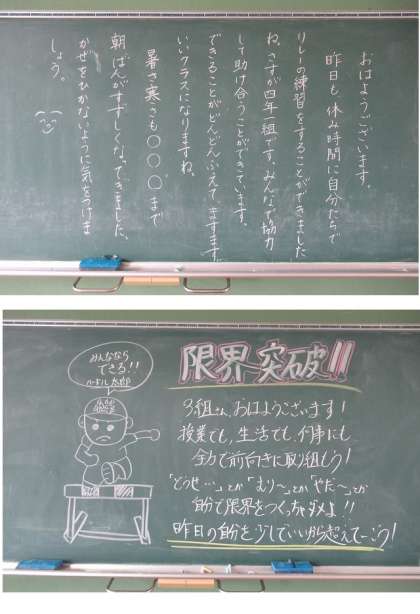 おはようございます。
昨日も、休み時間に自分たちで
リレーの練習をすることができました
ね。さすが四年一組です。みんなで協力
して助け合うことができています。
できることがどんどんふえて、ますます
いいクラスになりますね。
暑さ寒さも○○○まで
朝ばんがすずしくなってきました。
かぜをひかないように気をつけま
しょう。
みんななら
できる!!
ハードル太郎
限界突破!!
3組さん、おはようございます!
授業でも、生活でも、何事にも
全力で前向きに取り組もう!
「どうせ…」とか「むり〜」とか「やだ〜」とか
自分で限界をつくっちゃダメよ!!
昨日の自分を少しでいいから超えてこう!